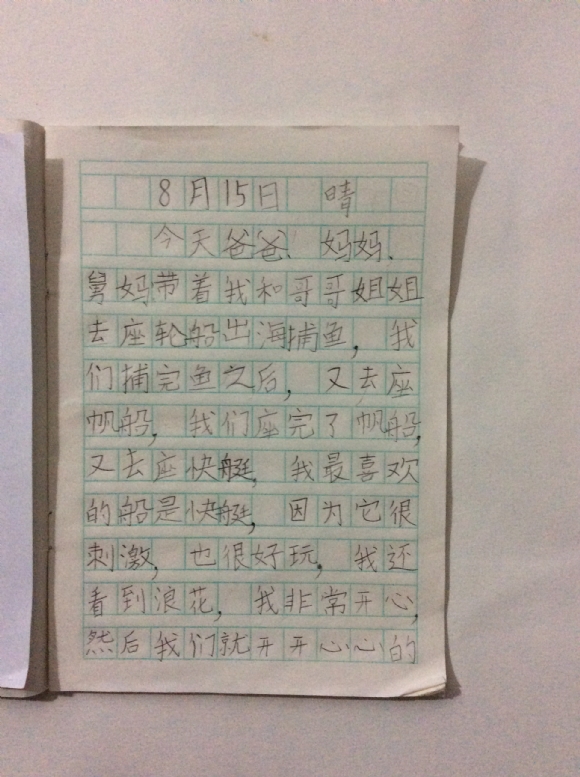 8月15日 晴
今天爸爸、妈妈、
舅妈带着我和哥哥姐姐
去座轮船出海捕鱼,我
们捕完鱼之后,又去座
帆船,我们座完了帆船,
又去座快艇,我最喜欢
的船是快艇,因为它很
刺激,也很好玩,我还
看到浪花,我非常开心,
然后我们就开开心心的